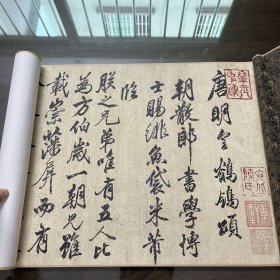 唐明皇鶺鴒頌
朝散郎書學博
士賜緋魚袋米芾
臨
朕之兄弟唯有五人比
為方伯歲一朝見雖
載崇藩屏而有